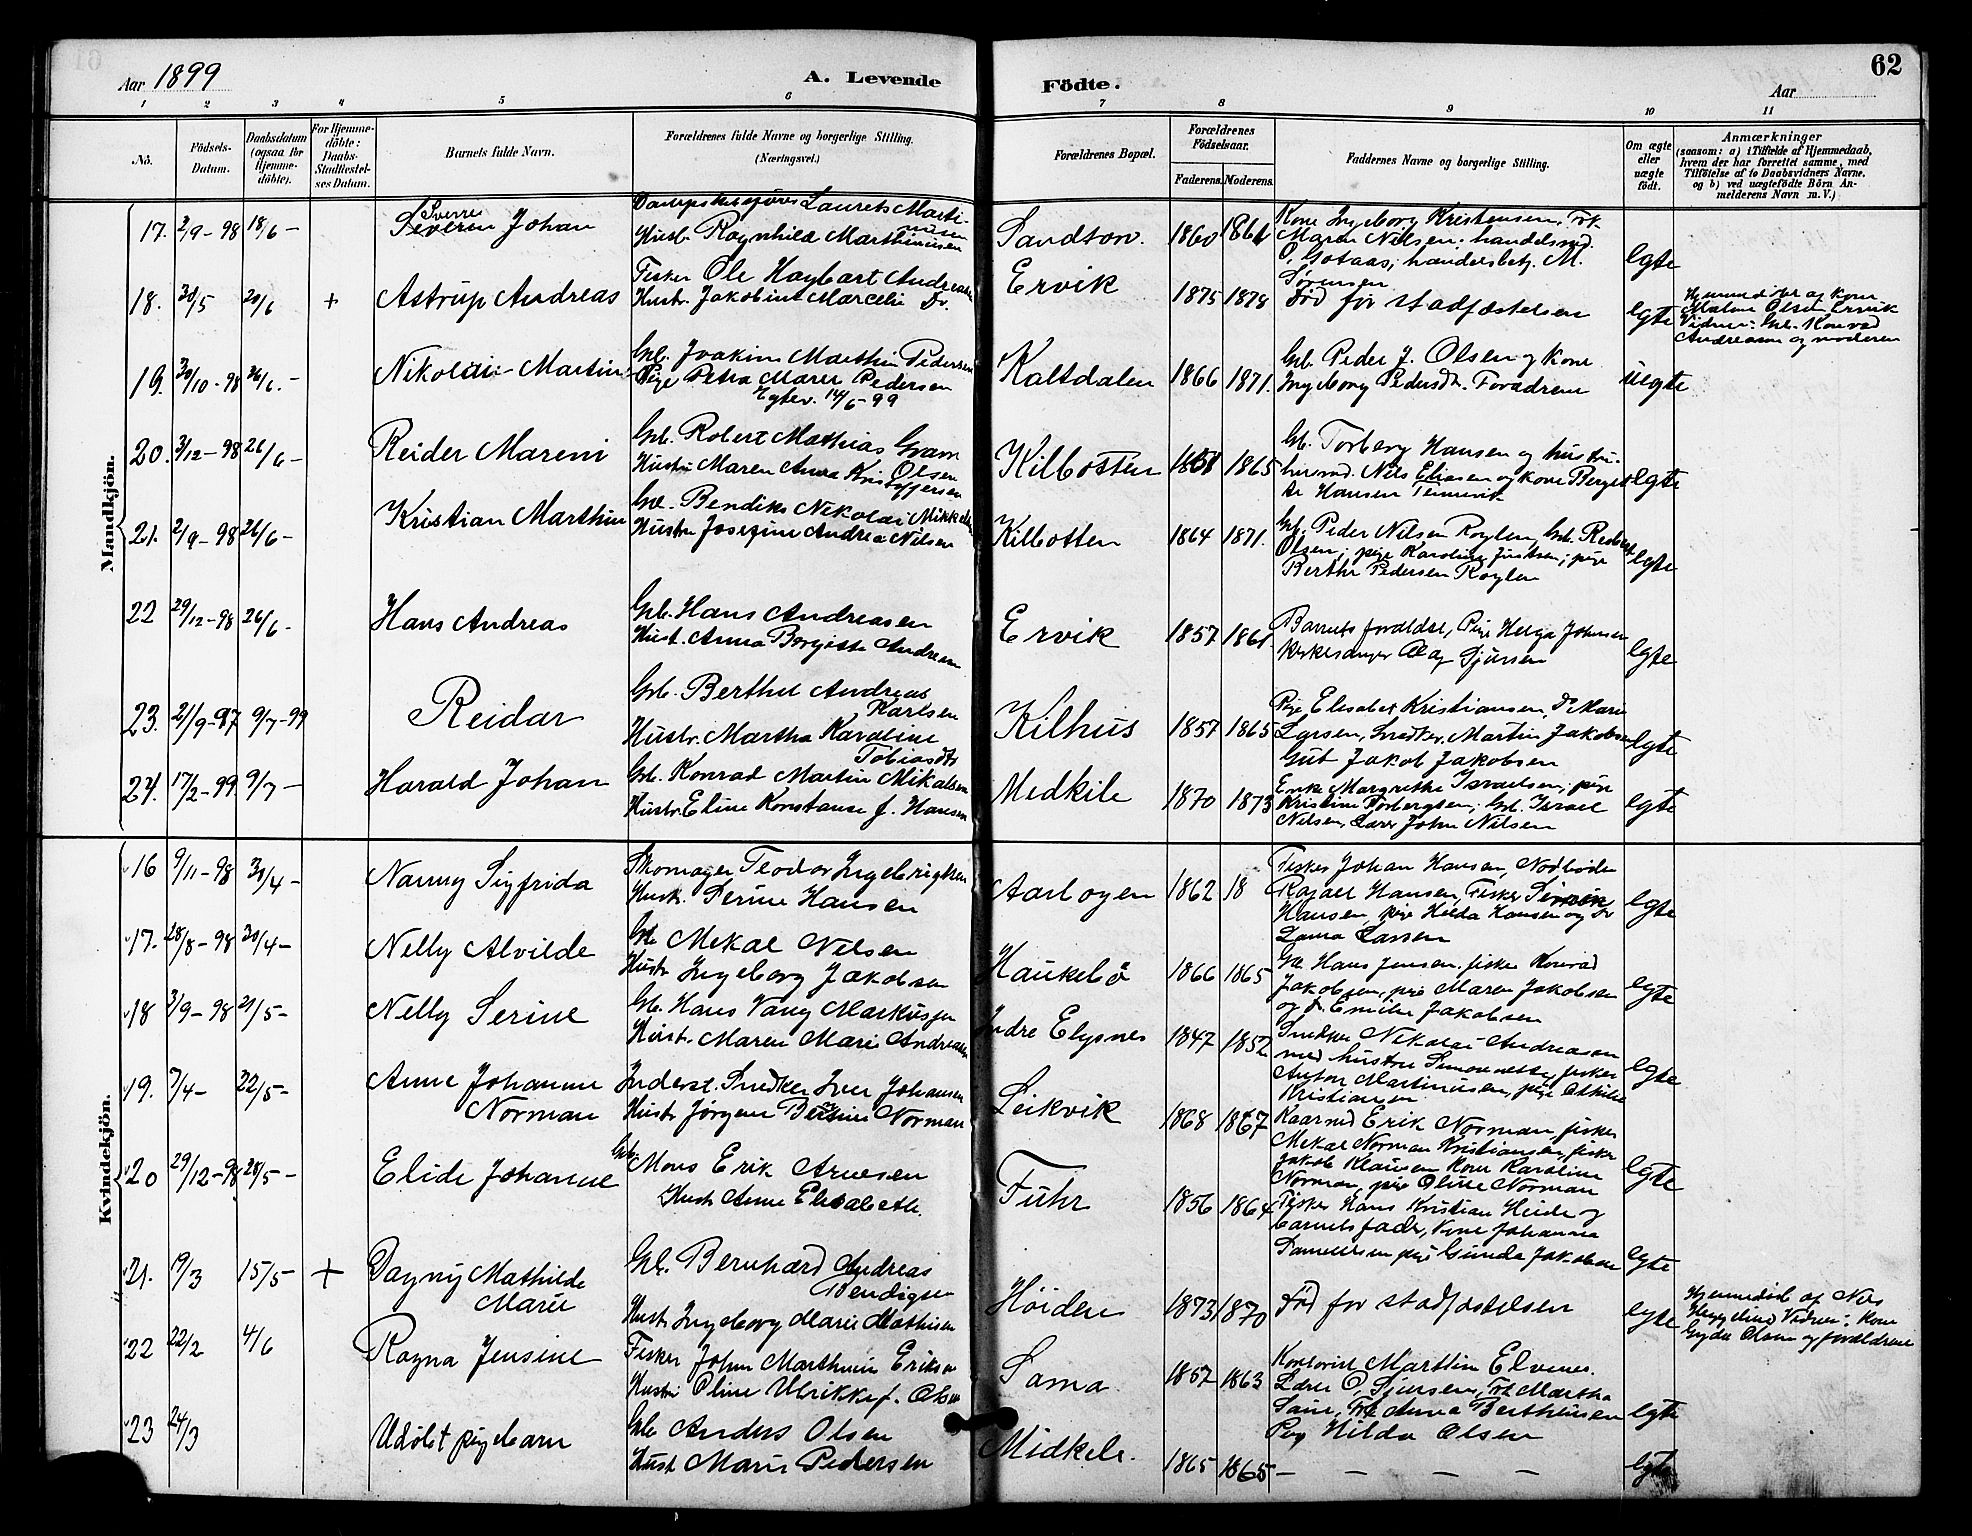 Aar 1899
A. Levende
Födte.
62
Aar
1 2 3 4 5 6 7 8 9 10 11
No.
Födsels-Datum.
Daabsdatum (ogsaa for Hjemme-döbte).
For Hjemme-döbte: Daabs-Stadfæstel-ses Datum.
Barnets fulde Navn.
Forældrenes fulde Navne og borgerlige Stilling. (Næringsvei.)
Forældrenes Bopæl.
Forældrenes Födselsaar.
Faderens. Moderens.
Faddernes Navne og borgerlige Stilling.
Om ægte eller uægte födt.
Anmærkninger
(saasom: a) i Tilfælde af Hjemmedaab, hvem der har forrettet samme, med Tilföielse af to Daabsvidners Navne, og b) ved uægtefödte Börn An-melderens Navn m. V.)
Mandkjön.
17. 2/9-98 18/6-
Sverre
Severin Johan
Laurets Marti-
nusen
Hustr. Ragnhild Marthinusen
Sandtorv. 1860 1861
Kone Ingeborg Kristensen, Frk.
Maren Nilsen; handelsmd.
O. Gotaas; handelsbetj. M.
Sørensen
Egte
18. 30/5 20/6 + Astrup Andreas
Fisker Ole Hagbart Andreasen
Hustr. Jakobine Marcelie Do.
Ervik 1875 1878
Død før stadfæstelsen
Egte
Hjemmedøbt af Kone
Malene Olsen Ervik
Vidner: Gbr. Konrad
Andreasen og moderen
19. 30/10-98 26/6.-
Nikolai Martin
Gbr. Joakim Marthin Pedersen
Pige Petra Maren Pedersen
Egtev. 14/6-99
Kaltdalen 1866 1871.
Gbr. Peder J. Olsen og kone
Ingeborg Pedersdr. Forældrene
Uegte
20. 3/12-98 26/6-
Reider Mareni
Gbr. Robert Mathias Gram
Olsen
Hustru Maren Anna Kristoffersen
Kilbotten 1865
Gb. Torberg Hansen og hustru
husmd. Nils Eliasen og kone Bergit-
te Hansen Tennevik
Egte
21. 2/9-98 26/6-
Kristian Marthin
Gbr. Bendiks Nikolai Mikkelsen
Hustru Josefine Andrea Nilsen
Kilbotten 1864 1871.
Gbr. Peder Nilsen Røylen, Gbr. Robert
Olsen; pige Karoline Justsen; pige
Berthe Pedersen Røylen
Egte
22 29/12-98 26/6-
Hans Andreas
Gbr. Hans Andreasen
Hust. Anna Bergitte Andreasen
Ervik 1857 1861.
Barnets forældre, Pige Helga Johnsen
Kirkesanger Olag Sjursen
Egte
23. 21/9-97 9/7-99
Reidar
Gbr. Berthel Andreas
Karlsen
Hustr. Martha Karoline
Tobiasdtr
Kilhus 1857 1865
Pige Elisabet Kristiansen, Do Marie
Larsen, Snedker Martin Jakobsen
Gut Jakob Jakobsen
Egte
24. 17/2-99 9/7-
Harald Johan
Gbr. Konrad Martin Mikalsen
Hustr. Eline Konstanse f. Hansen
Medkile 1870 1873
Enke Margrethe Israelsen; pige
Kristine Torbergsen; Gbr. Israel
Nilsen, Lærer John Nilsen
Egte
Kvindekjön.
16 9/11-98 30/4-
Nanny Sigfrida
Skomager Teodor Ingebrigtsen
Hustr. Serine Hansen
Aarbogen 1862 18
Fisker Johan Hansen, Nodboder
Rafael Hansen, Fisker
Hansen, pige Hilda Hansen og Do
Laura Larsen
Egte
17. 28/8-98 30/4-
Nelly Alvilde
Gbr. Mekal Nilsen
Hustr. Ingeborg Jakobsen
Haukebø 1866 1865
Gbr. Hans Jensen, fisker Konrad
Jakobsen, pige Maren Jakobsen
og do Emilie Jakobsen
Egte
18 3/9-98 21/5-
Nelly Serine
Gbr. Hans Vang Markussen
Hustr. Maren Marie Andreasen
Indre Elgsnes 1847 1852
Snedker Nikolai Andreasen
med hustru Simonette, fisker
Anton Martinusen, pige Othilie
Kristiansen
Egte
19. 7/4- 22/5-
Anne Johanne
Norman
Inderst. Snedker Iver Johansen
Hustr. Jørgine Norman
Leikvik 1868 1867
Kaarmd Erik Norman, fisker
Mekal Norman Kristiansen, fisker
Jakob Klausen Kone Karoline
Norman, pige Oline Norman
Egte
20 29/12-98 28/5-
Elide Johanne
Gbr. Mons Erik Arnesen
Hust. Anne Elisabeth.
Fuhr 1856 1864
Fisker Hans Kristian Heide og
barnets fader, Kone Johanna
Danielsen pige Gunda Jakobsen
Egte
21. 19/3 15/5- +
Dagny Mathilde
Marie
Gbr. Bernhard Andreas
Bendigsen
Hustr. Ingeborg Marie Mathisen
Høiden 1873 1870
Død før stadfæstelsen
Egte
Hjemmedøbt af Nils
Heggelund Vidner: Kone
Gyda Olsen og forældrene
22 22/2 4/6
Ragna Jensine
Fisker John Marthinin Eriksen
Hustr. Oline Ulrikke f. Olsen
Sama 1857 1863
Martin Elvenes.
Lærer O. Sjursen, Frk Martha
Frk Anna Berthinsen
Pige Hilda Olsen
Egte
23 24/3
Udöbt pigebarn
Gbr. Anders Olsen
Hust. Marie Pedersen
Midkile. 1865 1865 - - - - -
Egte